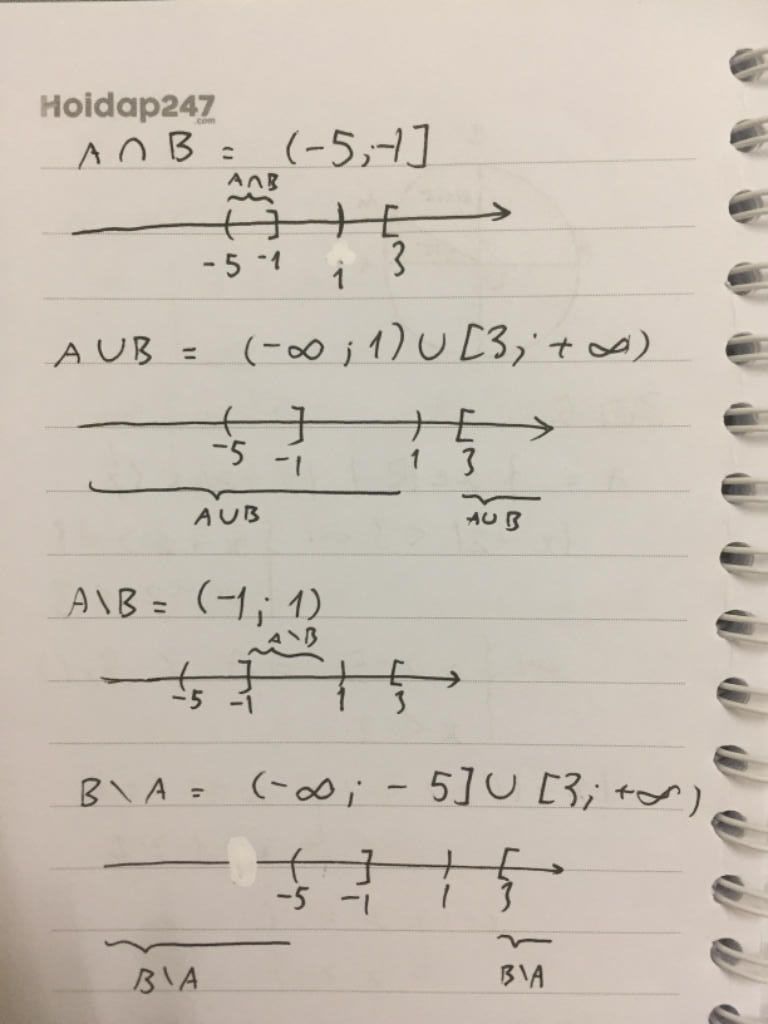 Hoidap247
.com
A ∩ B = (-5 ; -1]
A ∩ B
-5 -1 1 3
A ∪ B = (-∞ ; 1) ∪ [3 ; +∞)
-5 -1 1 3
A ∪ B A ∪ B
A \ B = (-1 ; 1)
A \ B
-5 -1 1 3
B \ A = (-∞ ; -5] ∪ [3 ; +∞)
-5 -1 1 3
B \ A B \ A